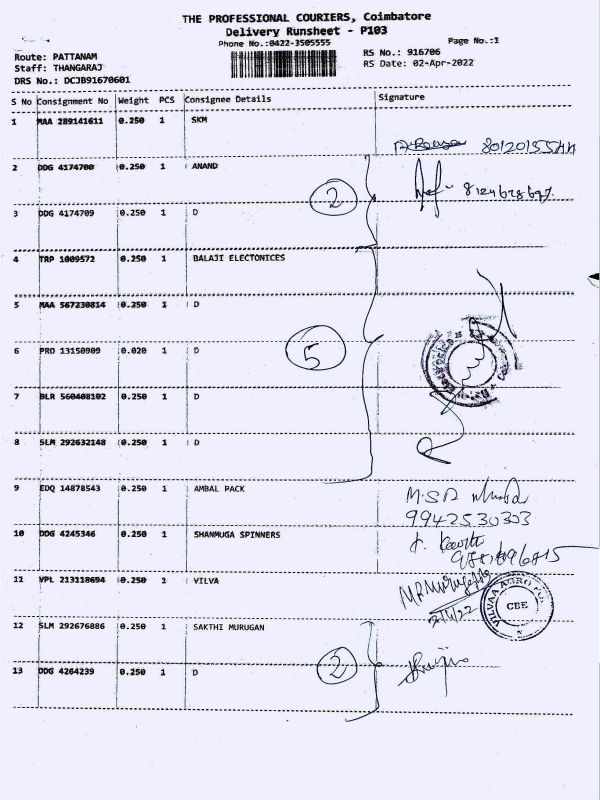 THE PROFESSIONAL COURIERS, Coimbatore
Delivery Runsheet - P103
Phone No.:0422-3505555
Page No.:1
Route: PATTANAM
RS No.: 916706
Staff: THANGARAJ
RS Date: 02-Apr-2022
DRS No.: DCJB91670601
S No Consignment No Weight PCS Consignee Details Signature
1 MAA 289141611 0.250 1 SKM
2 DDG 4174700 0.250 1 ANAND
2
3 DDG 4174709 0.250 1 D
4 TRP 1009572 0.250 1 BALAJI ELECTONICES
5 MAA 567230814 0.250 1 D
5
6 PRO 13150909 0.020 1 D
7 BLR 560408102 0.250 1 D
8 SLM 292632148 0.250 1 D
9 EDQ 14878543 0.250 1 AMBAL PACK
9942530303
10 DDG 4245346 0.250 1 SHANMUGA SPINNERS
11 VPL 213118694 0.250 1 VILVA
CBE
12 SLM 292676886 0.250 1 SAKTHI MURUGAN
2
13 DDG 4264239 0.250 1 D